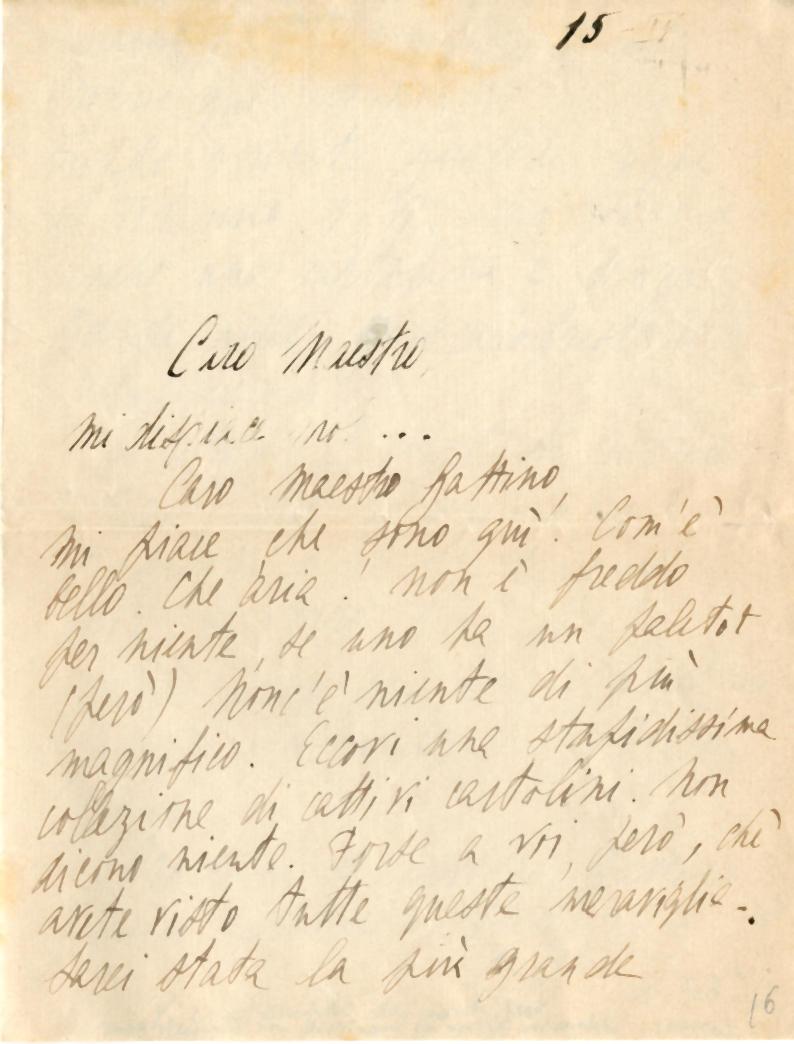 15
Caro Maestro,
mi dispiace no ...
Caro Maestro Gattino,
mi piace che sono qui! Com'è
bello. Che aria! non è freddo
per niente, se uno ha un paletot
(però) Non c'è niente di più
magnifico. Eccovi una stupidissima
colazione di cattivi cartolini. Non
dicono niente. Forse a voi, però, chè
avete visto tutte queste meraviglie.
Sarei stata la più grande
16